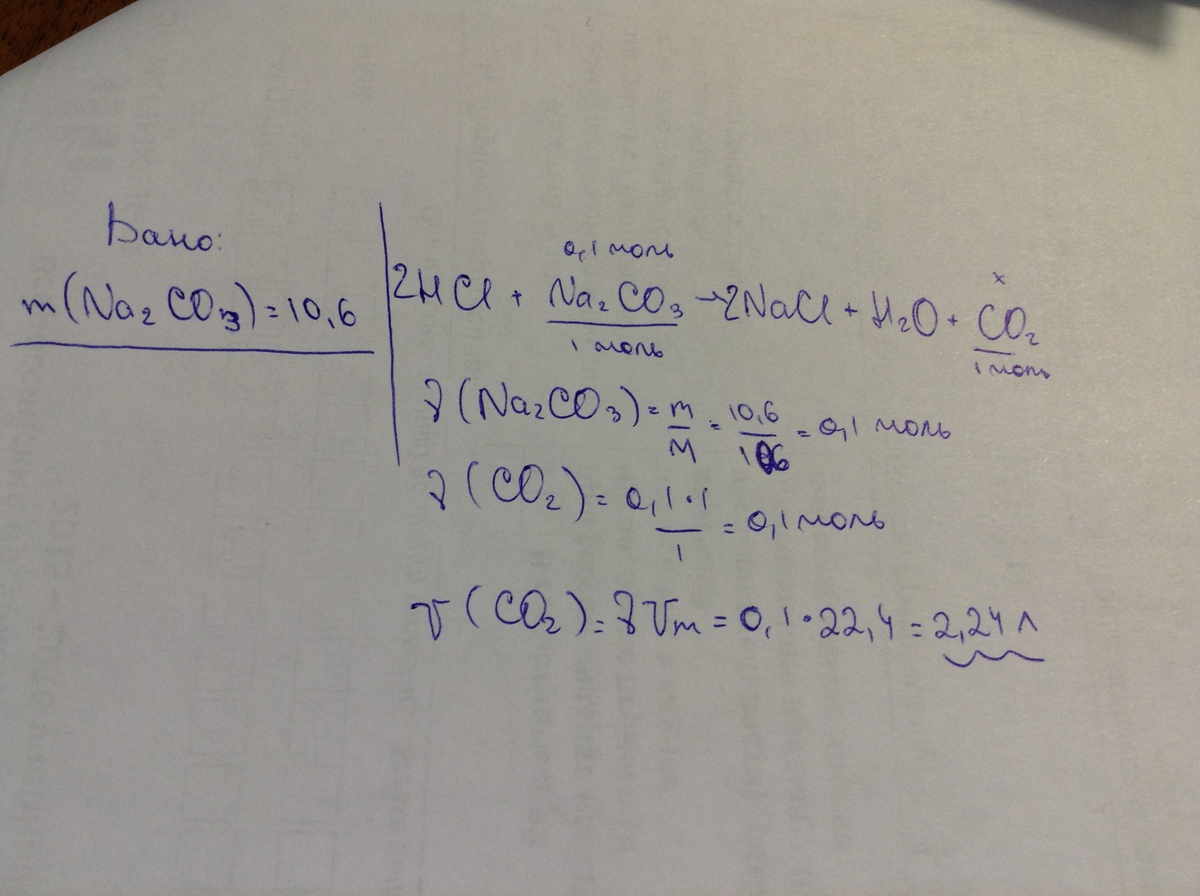 Дано:
m(Na₂CO₃)=10,6
0,1 моль
x
2HCl + Na₂CO₃ → 2NaCl + H₂O + CO₂
1 моль
1 моль
ν(Na₂CO₃) = m/M = 10,6/106 = 0,1 моль
ν(CO₂) = 0,1·1/1 = 0,1 моль
V(CO₂) = νVm = 0,1·22,4 = 2,24 л